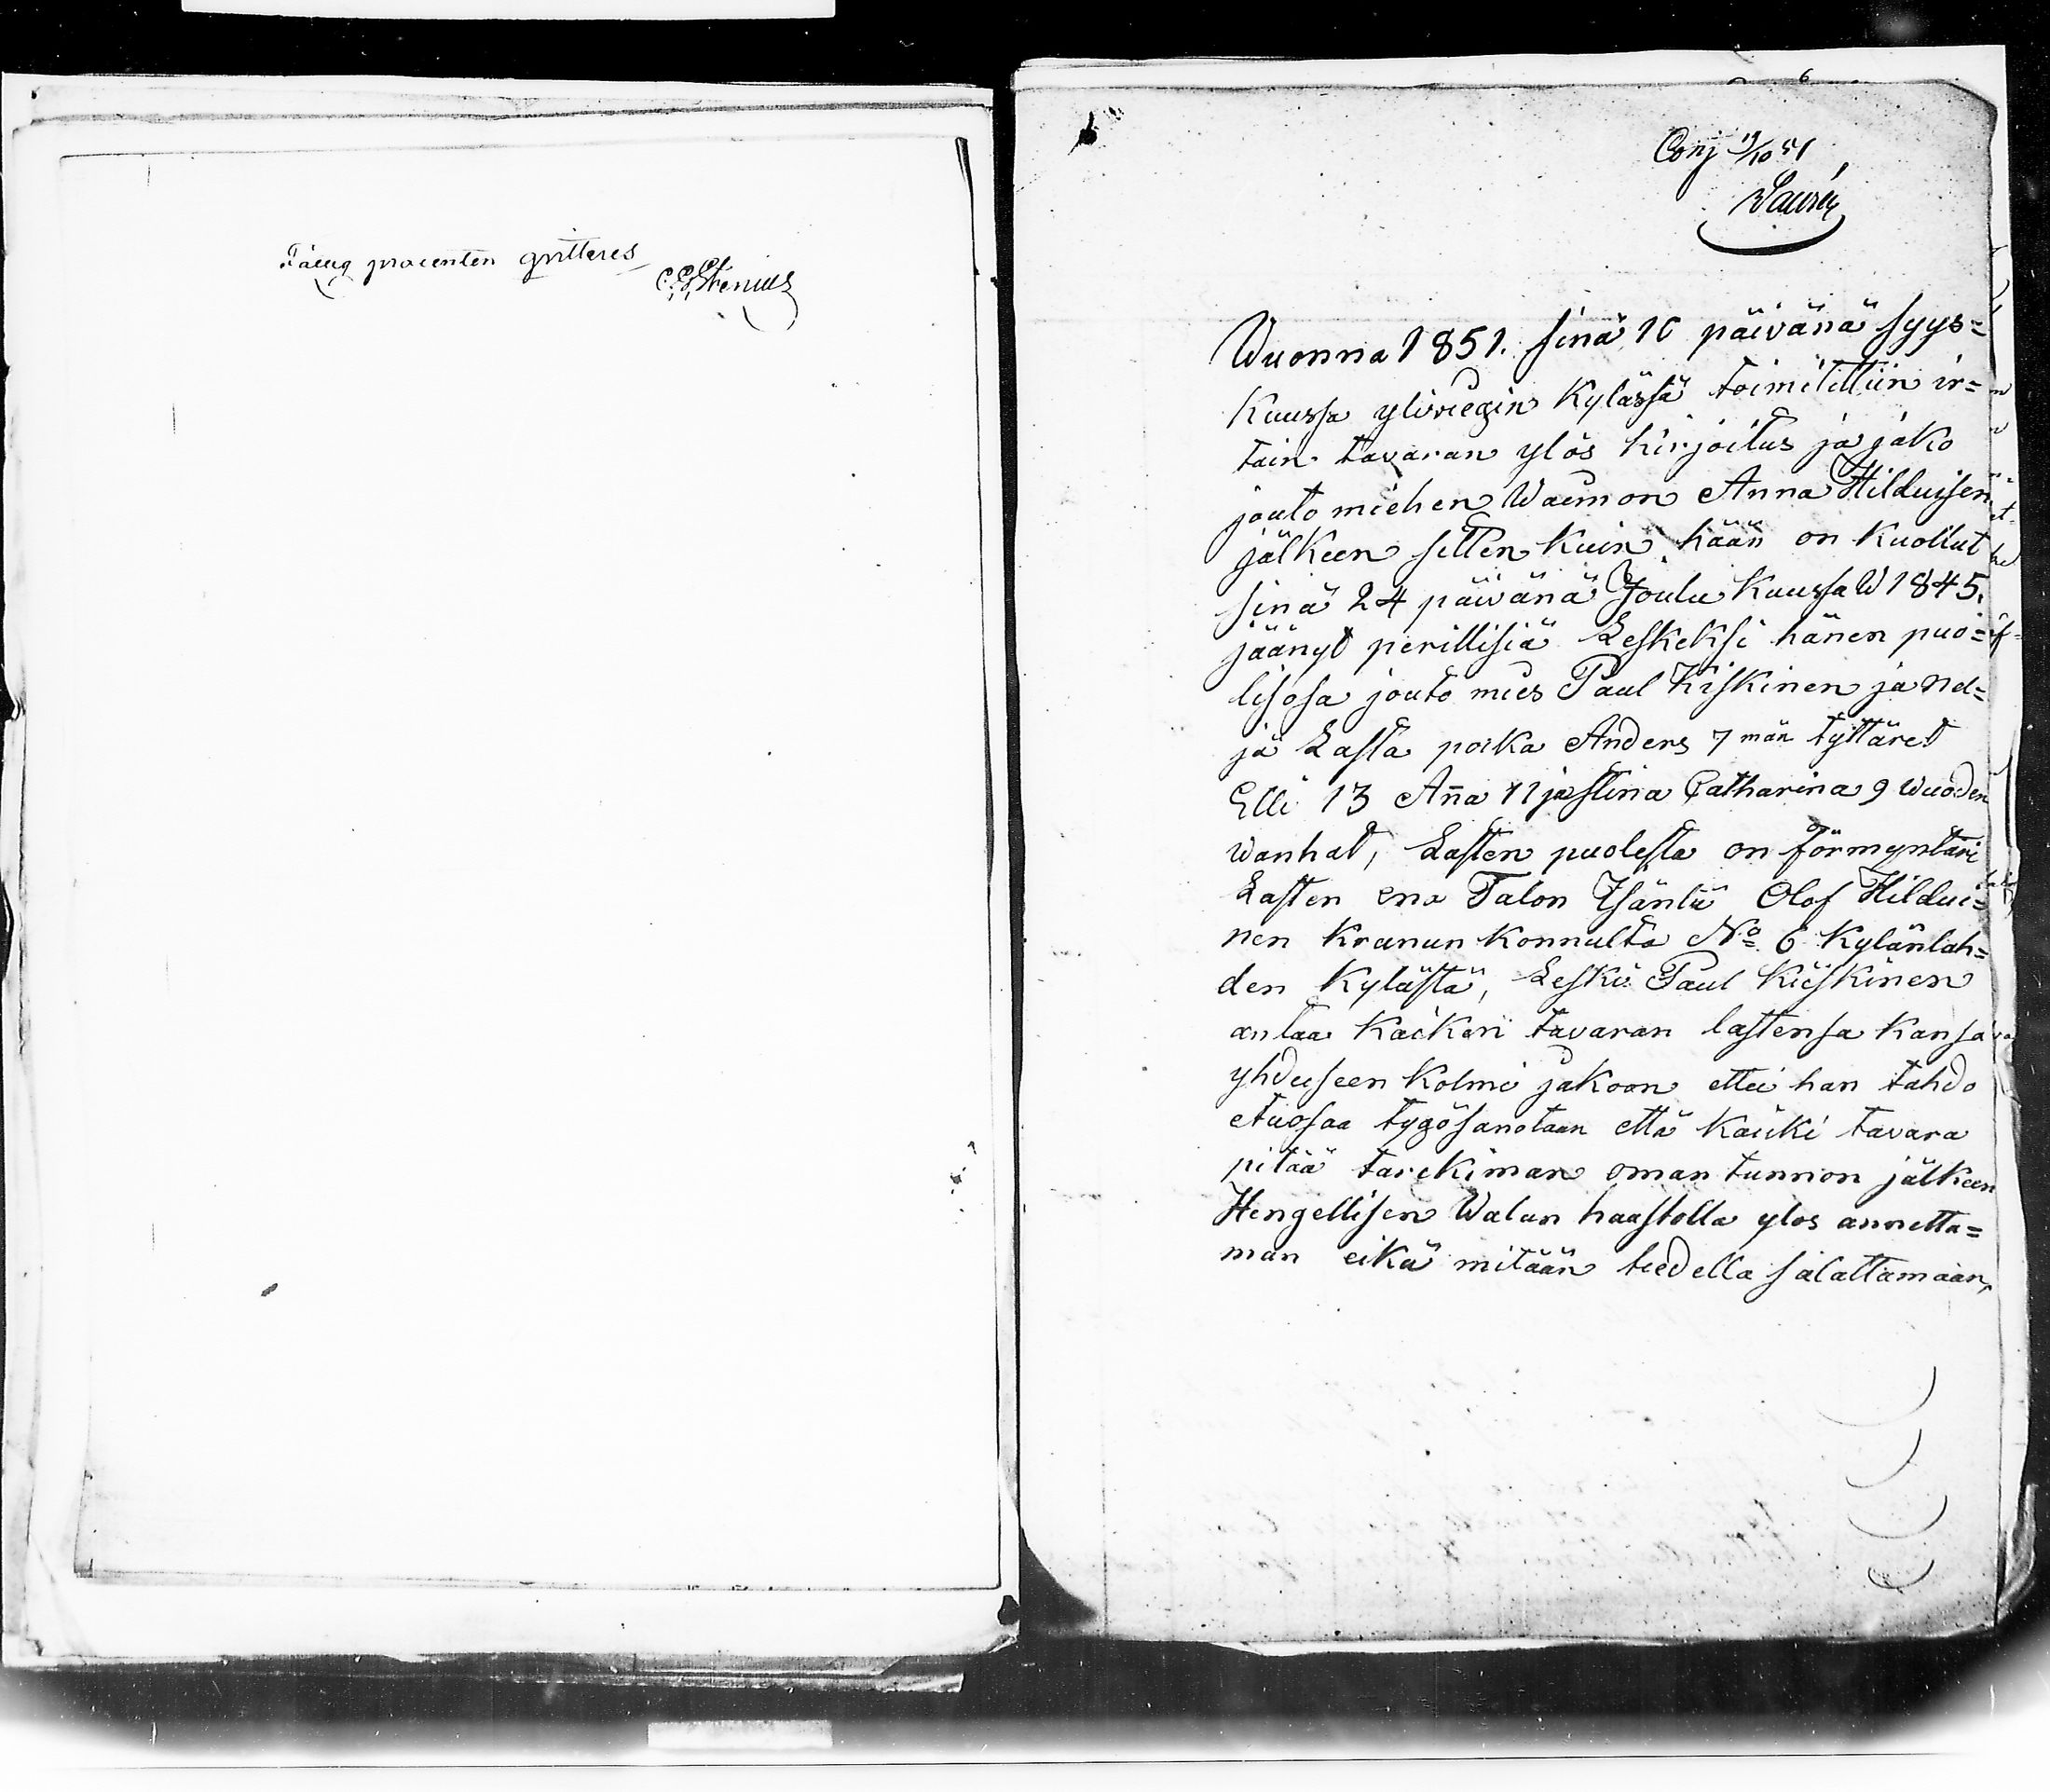 Fattig procenten qvitteres
C. E. Strenius
6
Conj 11/10 51
Laurén
Wuonna 1851. sinä 10 päivänä syys=
kuussa yliviegin kylässä toimitittiin ir=
tain tavaran ylös kirjoitus ja jako
jouto miehen Waimon Anna Hilduisen
jälkeen sitten kuin hään on kuollut
sinä 24 päivänä Joulu kuussa W 1845.
jäänyt perillisiä Leskeksi hänen puo=
lisosa jouto mies Paul Kiskinen ja nel=
jä Lasta poika Anders 7 män tyttäret
Elli 13 Aña 11 ja Stina Catharina 9 wuoden
wanhat, Lasten puolesta on förmyntäri
Lasten eno Talon Isäntä Olof Hildui=
nen kranun konnulta No 6 kylänlah=
den kylästä, Leski Paul Kiiskinen
antaa kaiken tavaran lastensa kansa
yhduseen kolmi jakoon ettei han tahdo
etuosaa tygösanotaan että kaiki tavara
pitää tarckiman oman tunnon jälkeen
Hengellisen Walan haastolla ylös annetta=
man eikä mitään tiedella salattamaan,